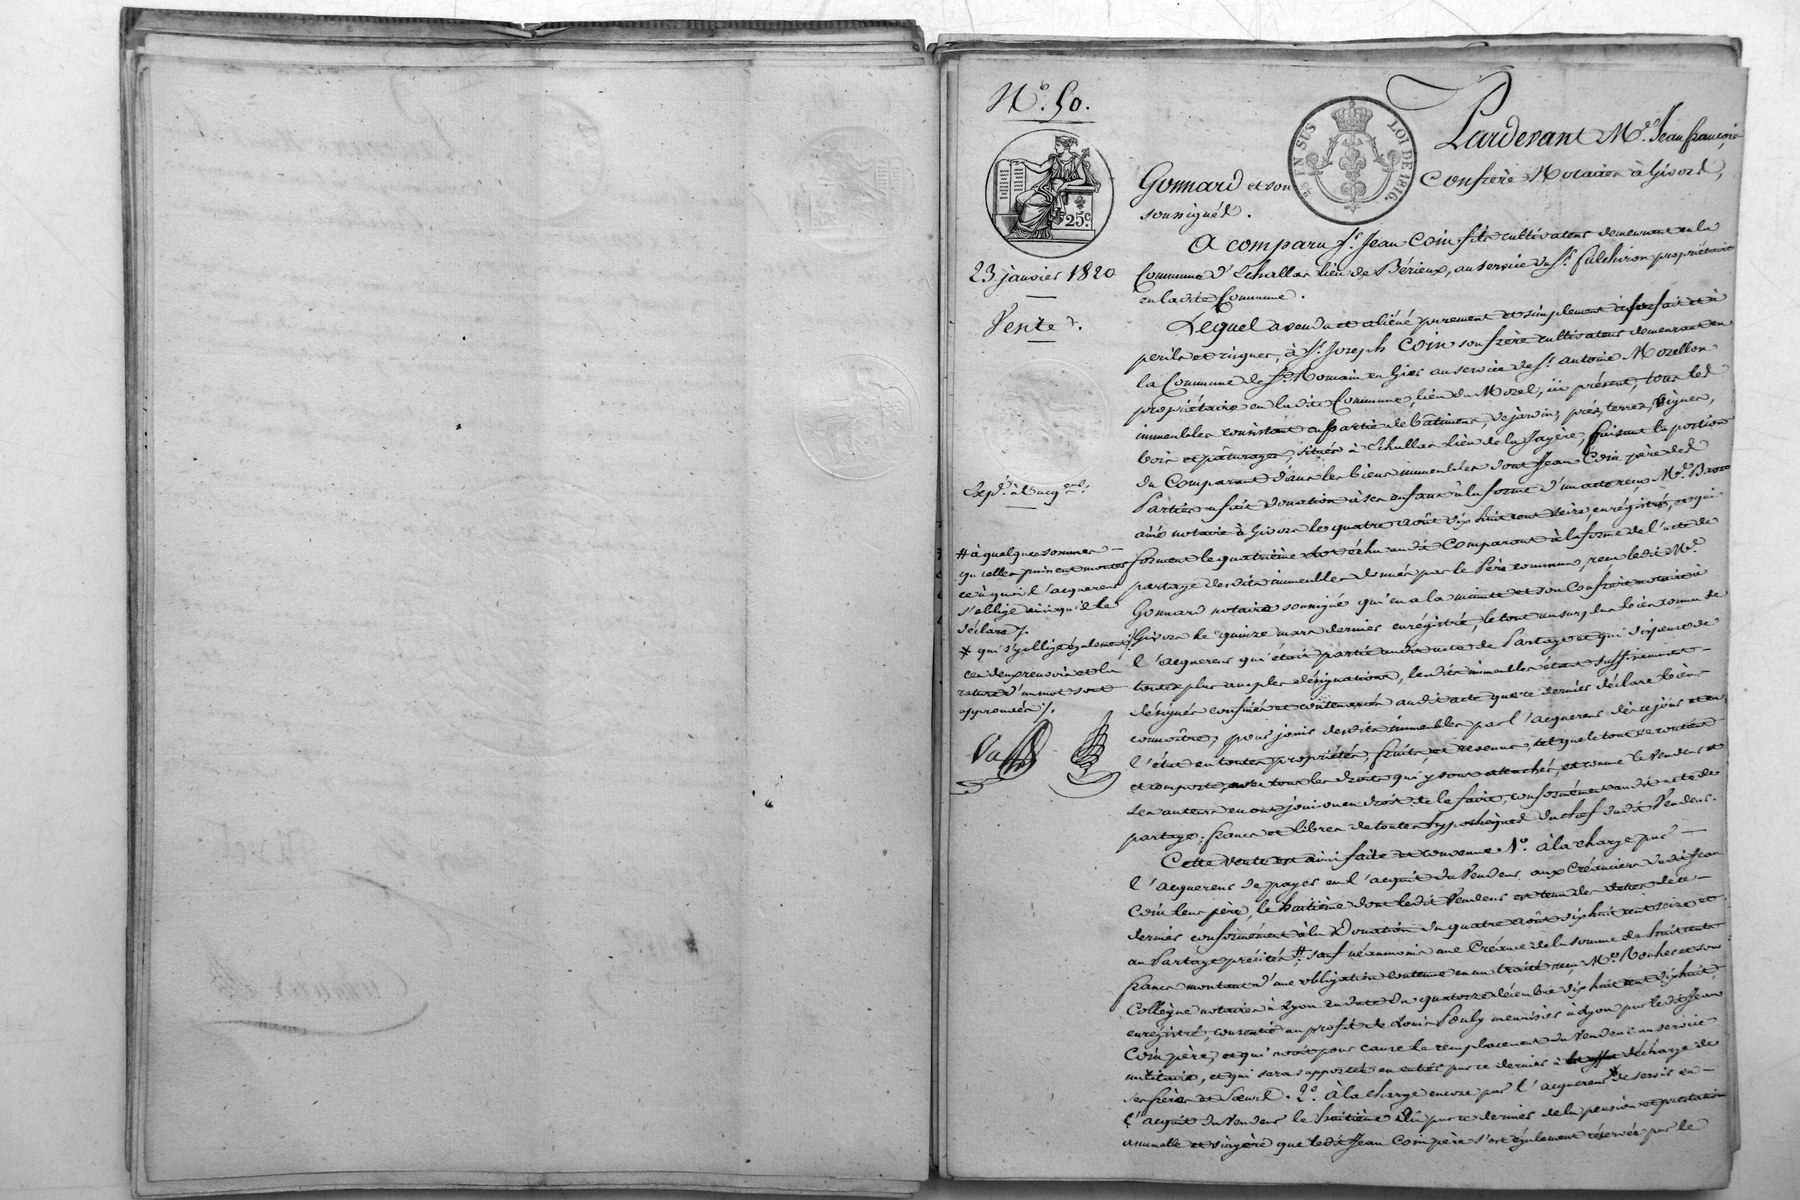 N.º 50.
25 EN SUS
LOI DE 1816.
25.c
23 janvier 1820
Vente.
Exp.ée à l'acq.
# à quelques sommes
qu'elles puissent monter
ce à quoi l'acquereur
s'oblige ainsi qu'il le
déclare /.
* qui s'y oblige également /.
ces deux renvois et la
rature d'un mot sont
approuvés /.
Pardevant M.e Jean françois
Gonnard et son Confrère Notaires à Givors,
soussignés.
A comparu S.r Jean Coin fils cultivateur demeurant en la
Commune d'Echallas lieu de Bérieux, au service du S.r fulchiron propriétaire
en ladite Commune.
Lequel a vendu et aliéné purement et simplement à forfait et à
perils et risques, à S.r Joseph Coin son frère cultivateur demeurant en
la Commune de S.t Romain en Gier au service de S.r antoine Mozellon
propriétaire en ladite Commune, lieu du Mozel, ici présent, tous les
immeubles consistant en partie de bâtimens, de jardin, prés, terres, vignes,
bois et pâturages, situés à Echallas lieu de la Jayère, faisant la portion
du Comparant dans les biens immeubles dont Jean Coin père des
Parties a fait donation à ses enfans à la forme d'un acte reçu M.e
ainé notaire à Givors le quatre août dix huit cent seize, enregistré, et qui
forment le quatrième lot échu audit Comparant à la forme de l'acte de
partage desdits immeubles donnés par le Père commun, reçu ledit M.e
Gonnard notaire soussigné qui en a la minute et son Confrère notaire à
Givors le quinze mars dernier enregistré, le tout au surplus bien connu de
l'acquereur qui était partie audit acte de Partage et qui dispense de
toutes plus amples désignations, lesdits immeubles étant suffisamment
désignés confinés et contenancés audit acte que ce dernier déclare bien
connoître, pour jouir desdits immeubles par l'acquereur dès ce jour et en
l'état en toutes propriétés, fruits, et revenus, tel que le tout se contient
et comporte, avec tous les droits qui y sont attachés, et comme le Vendeur et
ses auteurs en ont joui ou eu droit de le faire, conformément audit acte de
partage; francs et libres de toutes hypothèques du chef dudit Vendeur.
Cette vente est ainsi faite et convenue 1.º à la charge par
l'acquereur de payer en l'acquit du Vendeur aux Créanciers dudit Jean
Coin leur père, le huitième dont ledit Vendeur est tenu des dettes de ce
dernier conformément à la Donation du quatre août dix huit cent seize et
au Partage précités #, sauf néanmoins une Créance de la somme de huit cents
francs montant d'une obligation contenue en un traité reçu M.e Bonhect et son
Collègue notaires à Lyon en date du quatorze décembre dix huit cent dix huit,
enregistré, consentie au profit de Louis Pauly menuisier à Lyon par ledit Jean
Coin père, et qui avoit pour cause le remplacement du Vendeur au service
militaire, et qui sera supportée en entier par ce dernier à décharge de
ses frères et soeurs. 2.º à la charge encore par l'acquereur * de servir en
l'acquit du Vendeur le huitième dû par ce dernier de la pension et prestation
annuelle et viagère que ledit Jean Coin père s'est également réservée par le